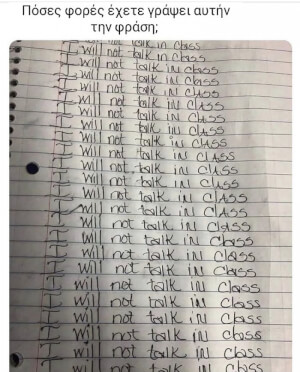 Πόσες φορές έχετε γράψει αυτήν
την φράση;
I will not talk in class
I will not talk in class
I will not talk in class
I will not talk in class
I will not talk in class
I will not talk in class
I will not talk in class
I will not talk in class
I will not talk in class
I will not talk in class
I will not talk in class
I will not talk in class
I will not talk in class
I will not talk in class
I will not talk in class
I will not talk in class
I will not talk in class
I will not talk in class
I will not talk in class
I will not talk in class
I will not talk in class
I will not talk in class
I will not talk in class
I will not talk in class